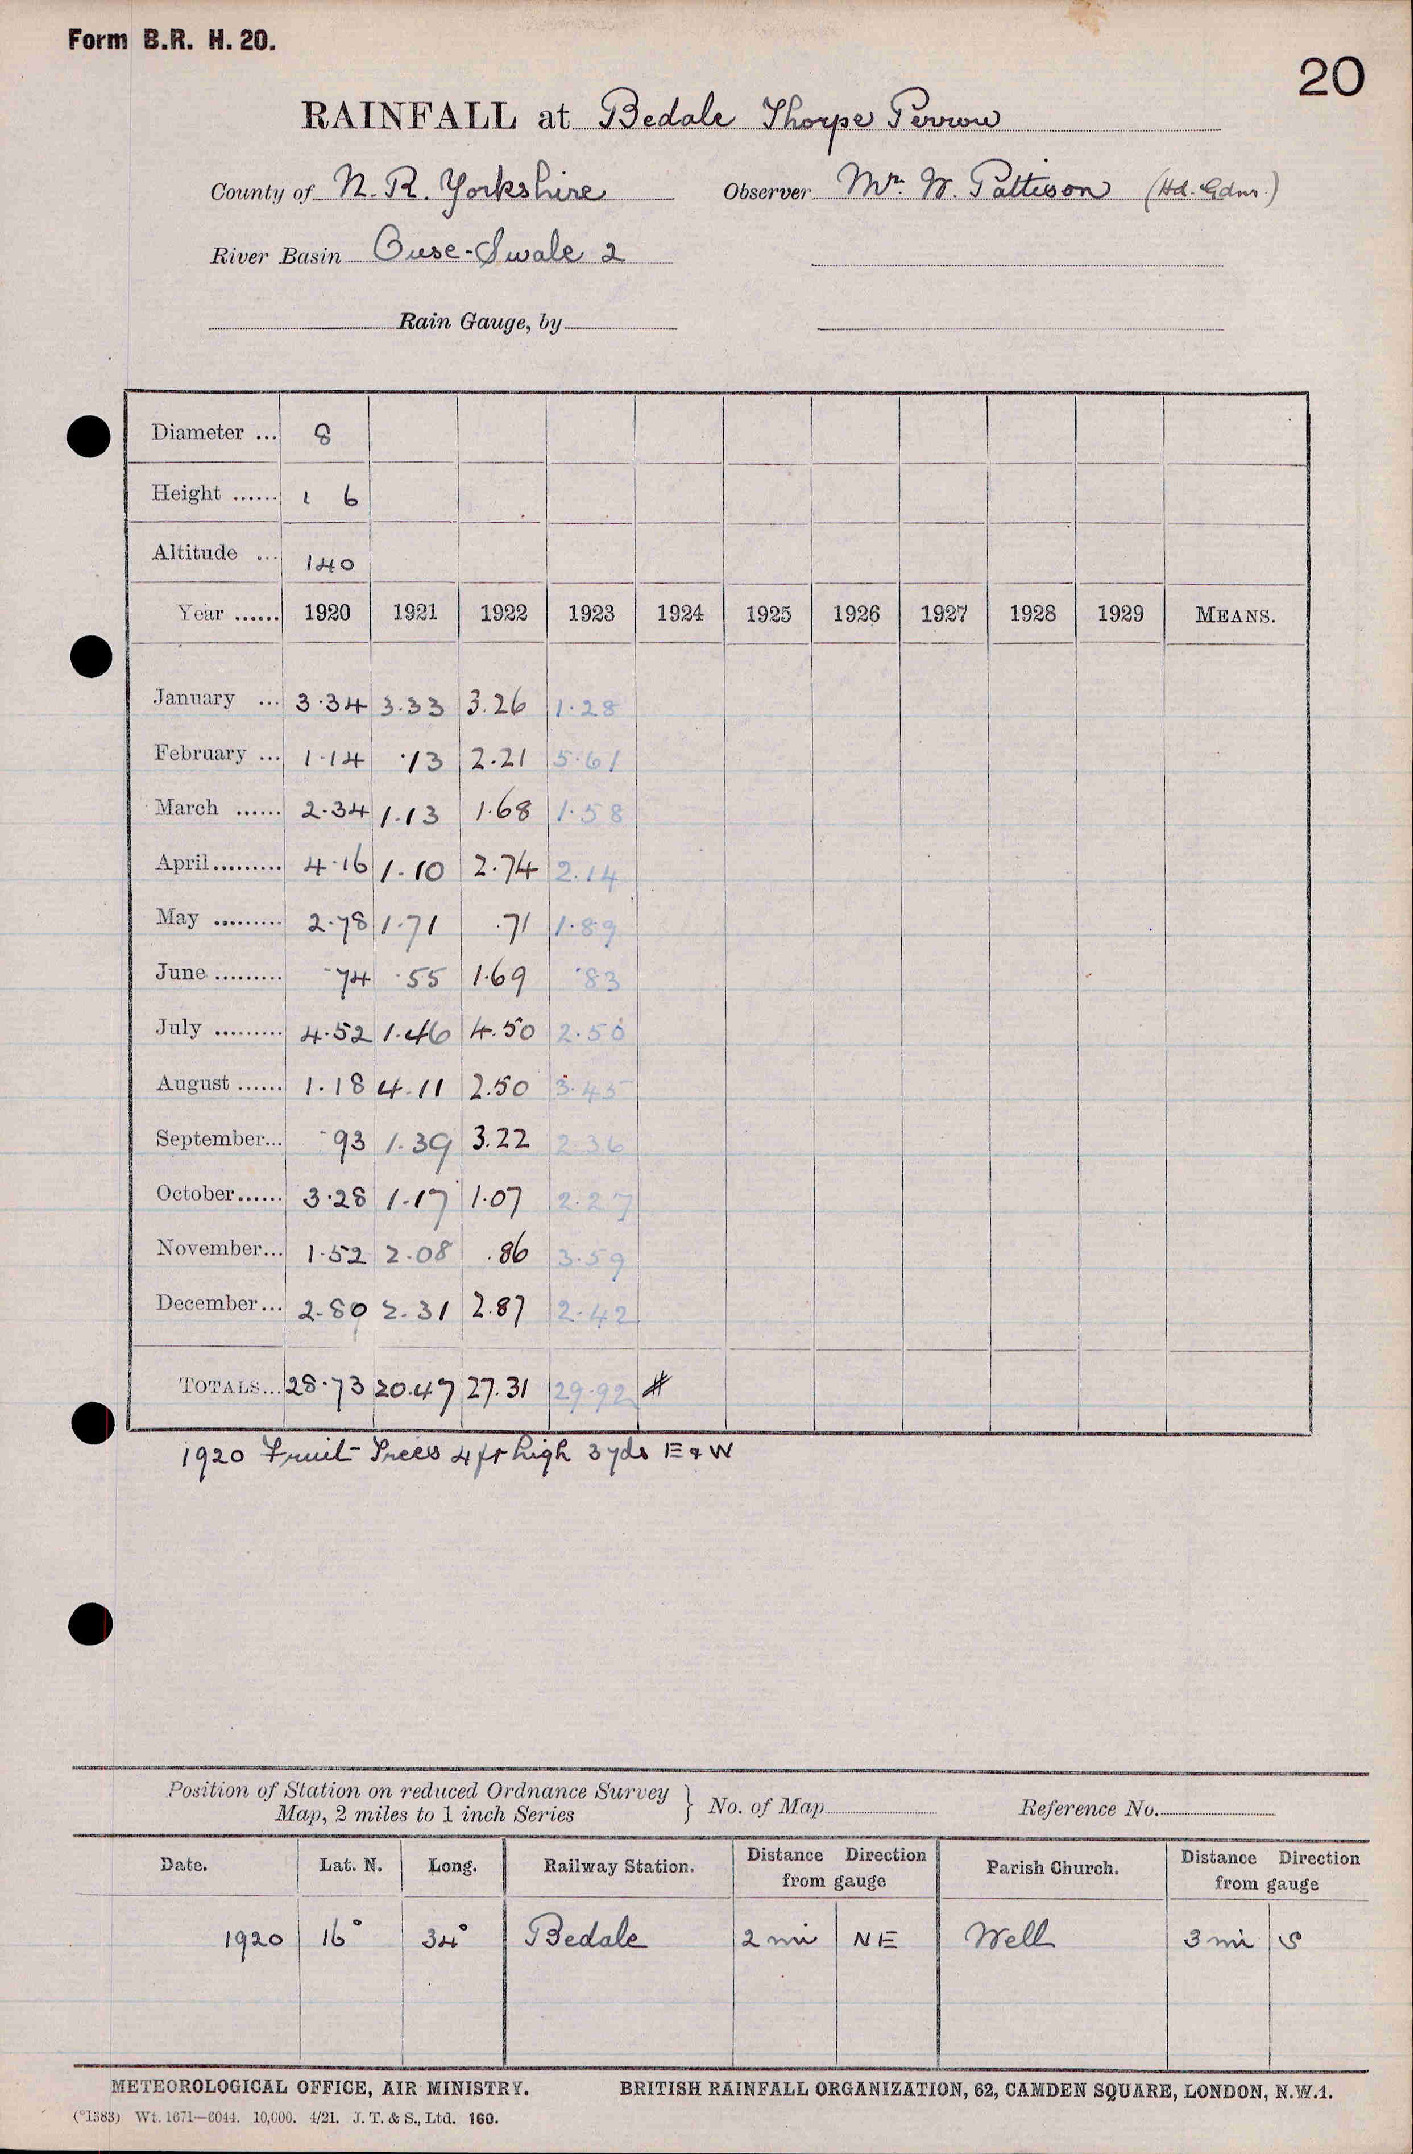 Form B.R. H. 20.
20
RAINFALL at Bedale Thorpe Perrow
County of N. R. Yorkshire Observer Mr. W. Pattison (Hd. Gdnr.)
River Basin Ouse-Swale 2
Rain Gauge, by
Diameter ... 8
Height ...... 1 6
Altitude ... 140
Year ...... 1920 1921 1922 1923 1924 1925 1926 1927 1928 1929 MEANS.
January ... 3·34 3.33 3.26 1·28
February ... 1·14 ·13 2.21 5·61
March ...... 2·34 1·13 1·68 1·58
April......... 4·16 1·10 2·74 2.14
May ......... 2·78 1·71 ·71 1·89
June ......... ·74 ·55 1·69 ·83
July ......... 4·52 1·46 4.50 2·50
August ...... 1·18 4·11 2.50 3·45
September... ·93 1·39 3.22 2·36
October...... 3·28 1·17 1·07 2·27
November... 1·52 2·08 .86 3·59
December... 2·80 2·31 2.87 2·42
TOTALS... 28·73 20.47 27.31 29·92 #
1920 Fruit Trees 4 ft high 3 yds E & W
Position of Station on reduced Ordnance Survey
Map, 2 miles to 1 inch Series } No. of Map Reference No.
Date. Lat. N. Long. Railway Station. Distance Direction from gauge Parish Church. Distance Direction from gauge
1920 16° 34° Bedale 2 mi NE Well 3 mi S
METEOROLOGICAL OFFICE, AIR MINISTRY. BRITISH RAINFALL ORGANIZATION, 62, CAMDEN SQUARE, LONDON, N.W.1.
(*1383) Wt. 1671—6044. 10,000. 4/21. J. T. & S., Ltd. 160.